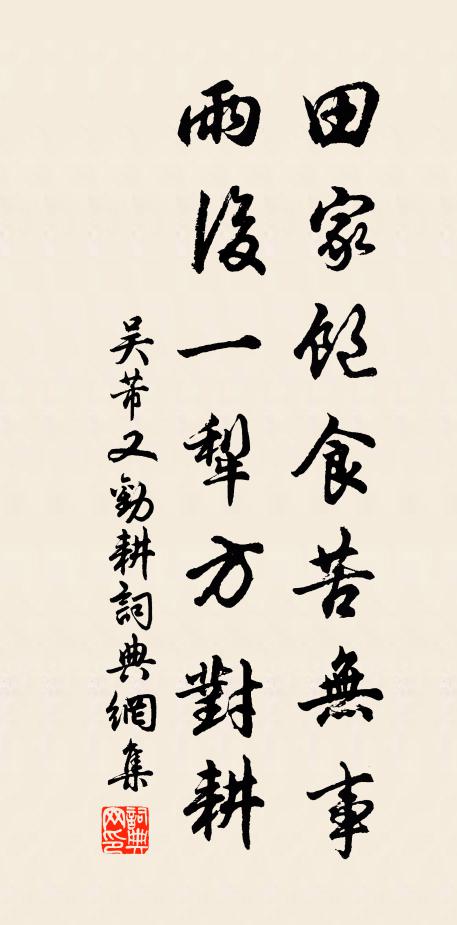 田家飽食苦無事
雨後一犂方對耕
吴芾又勸耕詞典網集
詞典网印